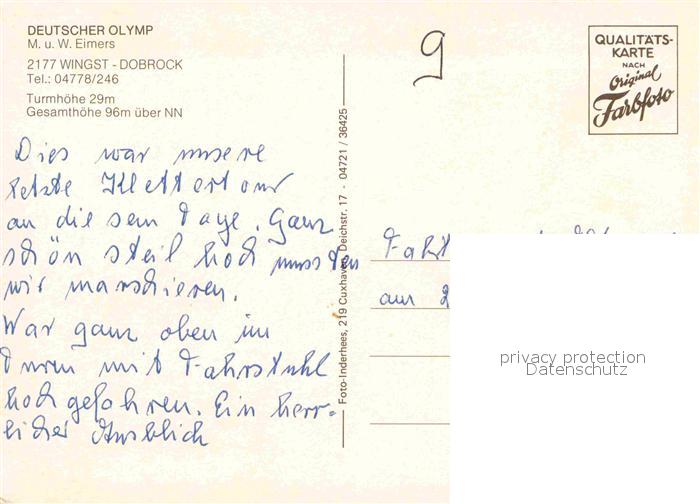 DEUTSCHER OLYMP
M. u. W. Eimers
2177 WINGST - DOBROCK
Tel.: 04778/246
Turmhöhe 29m
Gesamthöhe 96m über NN
Dies war unsere
letzte Klettertour
an die sem Tage. Ganz
schön steil hoch mussten
wir marschieren.
War ganz oben im
Turm mit Fahrstuhl
hoch gefahren. Ein herr-
licher Ausblick
Foto-Inderhees, 219 Cuxhaven, Deichstr. 17 · 04721 / 36425
9
QUALITÄTS-
KARTE
NACH
Original
Farbfoto
Fahrt
am 2
privacy protection
Datenschutz